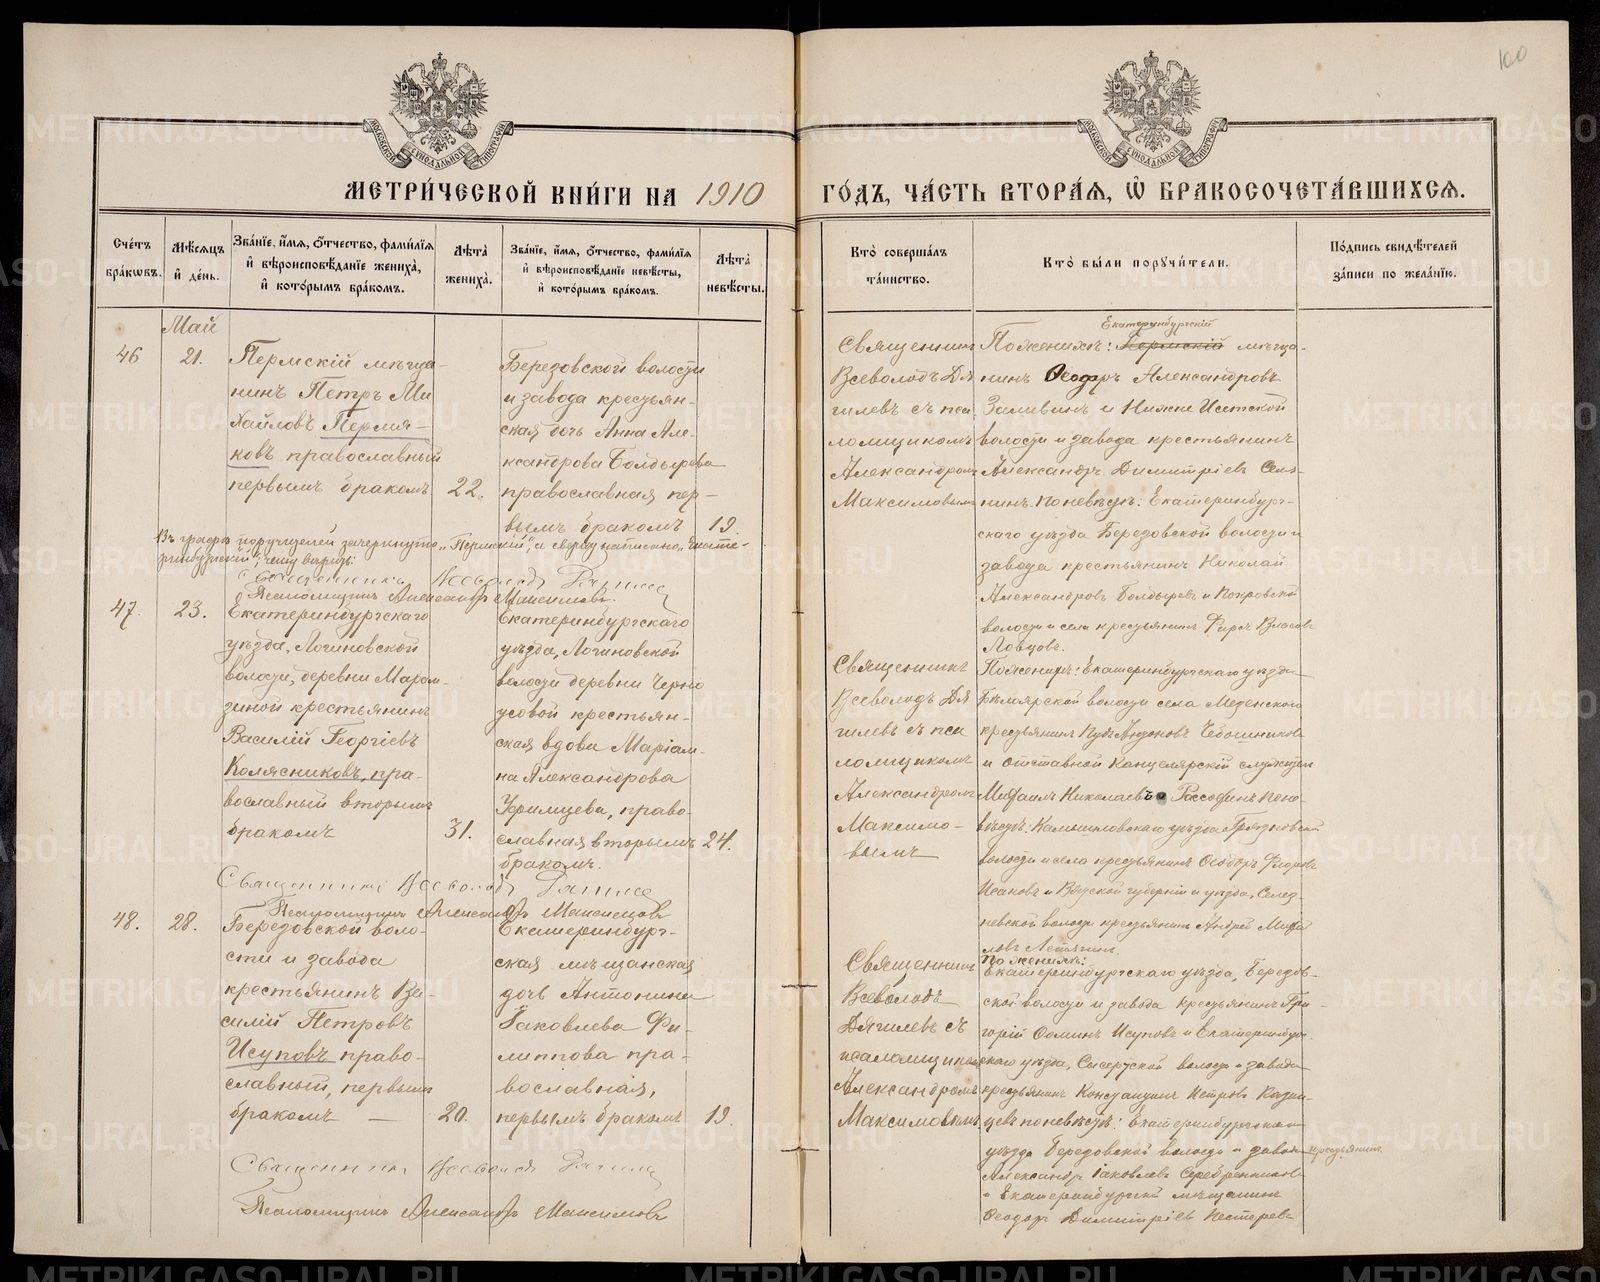 100
МОСКОВСКОЙ СѴНОДАЛЬНОЙ ТИПОГРАФІИ
МОСКОВСКОЙ СѴНОДАЛЬНОЙ ТИПОГРАФІИ
МЕТРИ́ЧЕСКОЙ КНИ́ГИ НА 1910
ГО́ДЪ, ЧА́СТЬ ВТОРА́Ѧ, Ѽ БРАКОСОЧЕТА́ВШИХСѦ.
Сче́тъ бра́кѡвъ.
Мѣ́сѧцъ и҆ де́нь.
Зва́нїе, и҆́мѧ, ѻ҆́тчество, фами́лїѧ и҆ вѣроисповѣ́данїе жениха̀, и҆ кото́рымъ бра́комъ.
Лѣ́та жениха̀.
Зва́нїе, и҆́мѧ, ѻ҆́тчество, фами́лїѧ и҆ вѣроисповѣ́данїе невѣ́сты, и҆ кото́рымъ бра́комъ.
Лѣ́та невѣ́сты.
Кто̀ соверша́лъ та́инство.
Кто̀ бы́ли порꙋчи́тели.
По́дпись свидѣ́телей за́писи по жела́нїю.
Май
46
21.
Пермскій мѣща-
нинъ Петръ Ми
хайловъ Пермя-
ковъ православный
первымъ бракомъ
22.
Березовской волости
и завода крестьян-
ская дочь Анна Але-
ксандрова Болдырева
православная пер-
вымъ бракомъ
19
Священникъ
Всеволодъ Дя
гилевъ съ пса
ломщикомъ
Александромъ
Максимовымъ
Екатеринбургскій
По женихѣ: Пермскій мѣща-
нинъ Ѳеодоръ Александровъ
Заливинъ и Нижне Исетской
волости и завода крестьянинъ
Александръ Димитріевъ Село-
нинъ. по невѣстѣ: Екатеринбург-
скаго уѣзда Березовской волости и
завода крестьянинъ Николай
Александровъ Болдыревъ и Покровской
волости и села крестьянинъ Власовъ
Ловцовъ.
Въ графѣ поручителей зачеркнуто „Пермскій", и сверху написано „Екате-
ринбургскій", чему вѣрить:
Священникъ Всеволодъ Дягилев
Псаломщикъ Александръ Максимовъ
47.
23.
Екатеринбургскаго
уѣзда, Логиновской
волости, деревни Марам-
зиной крестьянинъ
Василій Георгіевъ
Колясниковъ, пра-
вославный вторымъ
бракомъ
31.
Екатеринбургскаго
уѣзда, Логиновской
волости деревни Черно
усовой крестьян-
ская вдова Маріам-
на Александрова
Уфимцева, право-
славная вторымъ
бракомъ.
24.
Священникъ
Всеволодъ Дя
гилевъ съ пса
ломщикомъ
Александромъ
Максимо-
вымъ
По женихѣ: Екатеринбургскаго уѣзда
волости села
крестьянинъ Чебошниковъ
и отставной Канцелярскій служитель
Михаилъ Николаевъ Рассохинъ по не-
вѣстѣ: Камышловскаго уѣзда Грязновской
волости и села крестьянинъ Ѳеодоръ
Исаковъ и Вятской губерніи и уѣзда, Селез-
невской волости крестьянинъ Андрей Михай
ловъ
Священникъ Всеволодъ Дягилев
Псаломщикъ Александръ Максимовъ
48.
28.
Березовской воло-
сти и завода
крестьянинъ Ва-
силій Петровъ
Исуповъ право-
славный, первымъ
бракомъ —
20.
Екатеринбург-
ская мѣщанская
дочь Антонина
Іаковлева Фи-
липпова пра-
вославная,
первымъ бракомъ
19.
Священникъ
Всеволодъ
Дягилевъ съ
псаломщикомъ
Александромъ
Максимовымъ.
По женихѣ:
Екатеринбургскаго уѣзда, Березов-
ской волости и завода крестьянинъ Гри-
горій Исуповъ и Екатеринбург-
скаго уѣзда, Сысертской волости и завода
крестьянинъ Константинъ Петровъ Казан-
цевъ по невѣстѣ: Екатеринбургскаго
уѣзда Березовской волости и завода крестьянинъ
Александръ Іаковлевъ Серебренниковъ
и Екатеринбургскій мѣщанинъ
Ѳеодоръ Димитріевъ Нестеровъ
Священникъ Всеволодъ Дягилев
Псаломщикъ Александръ Максимовъ
METRIKI.GASO-URAL.RU